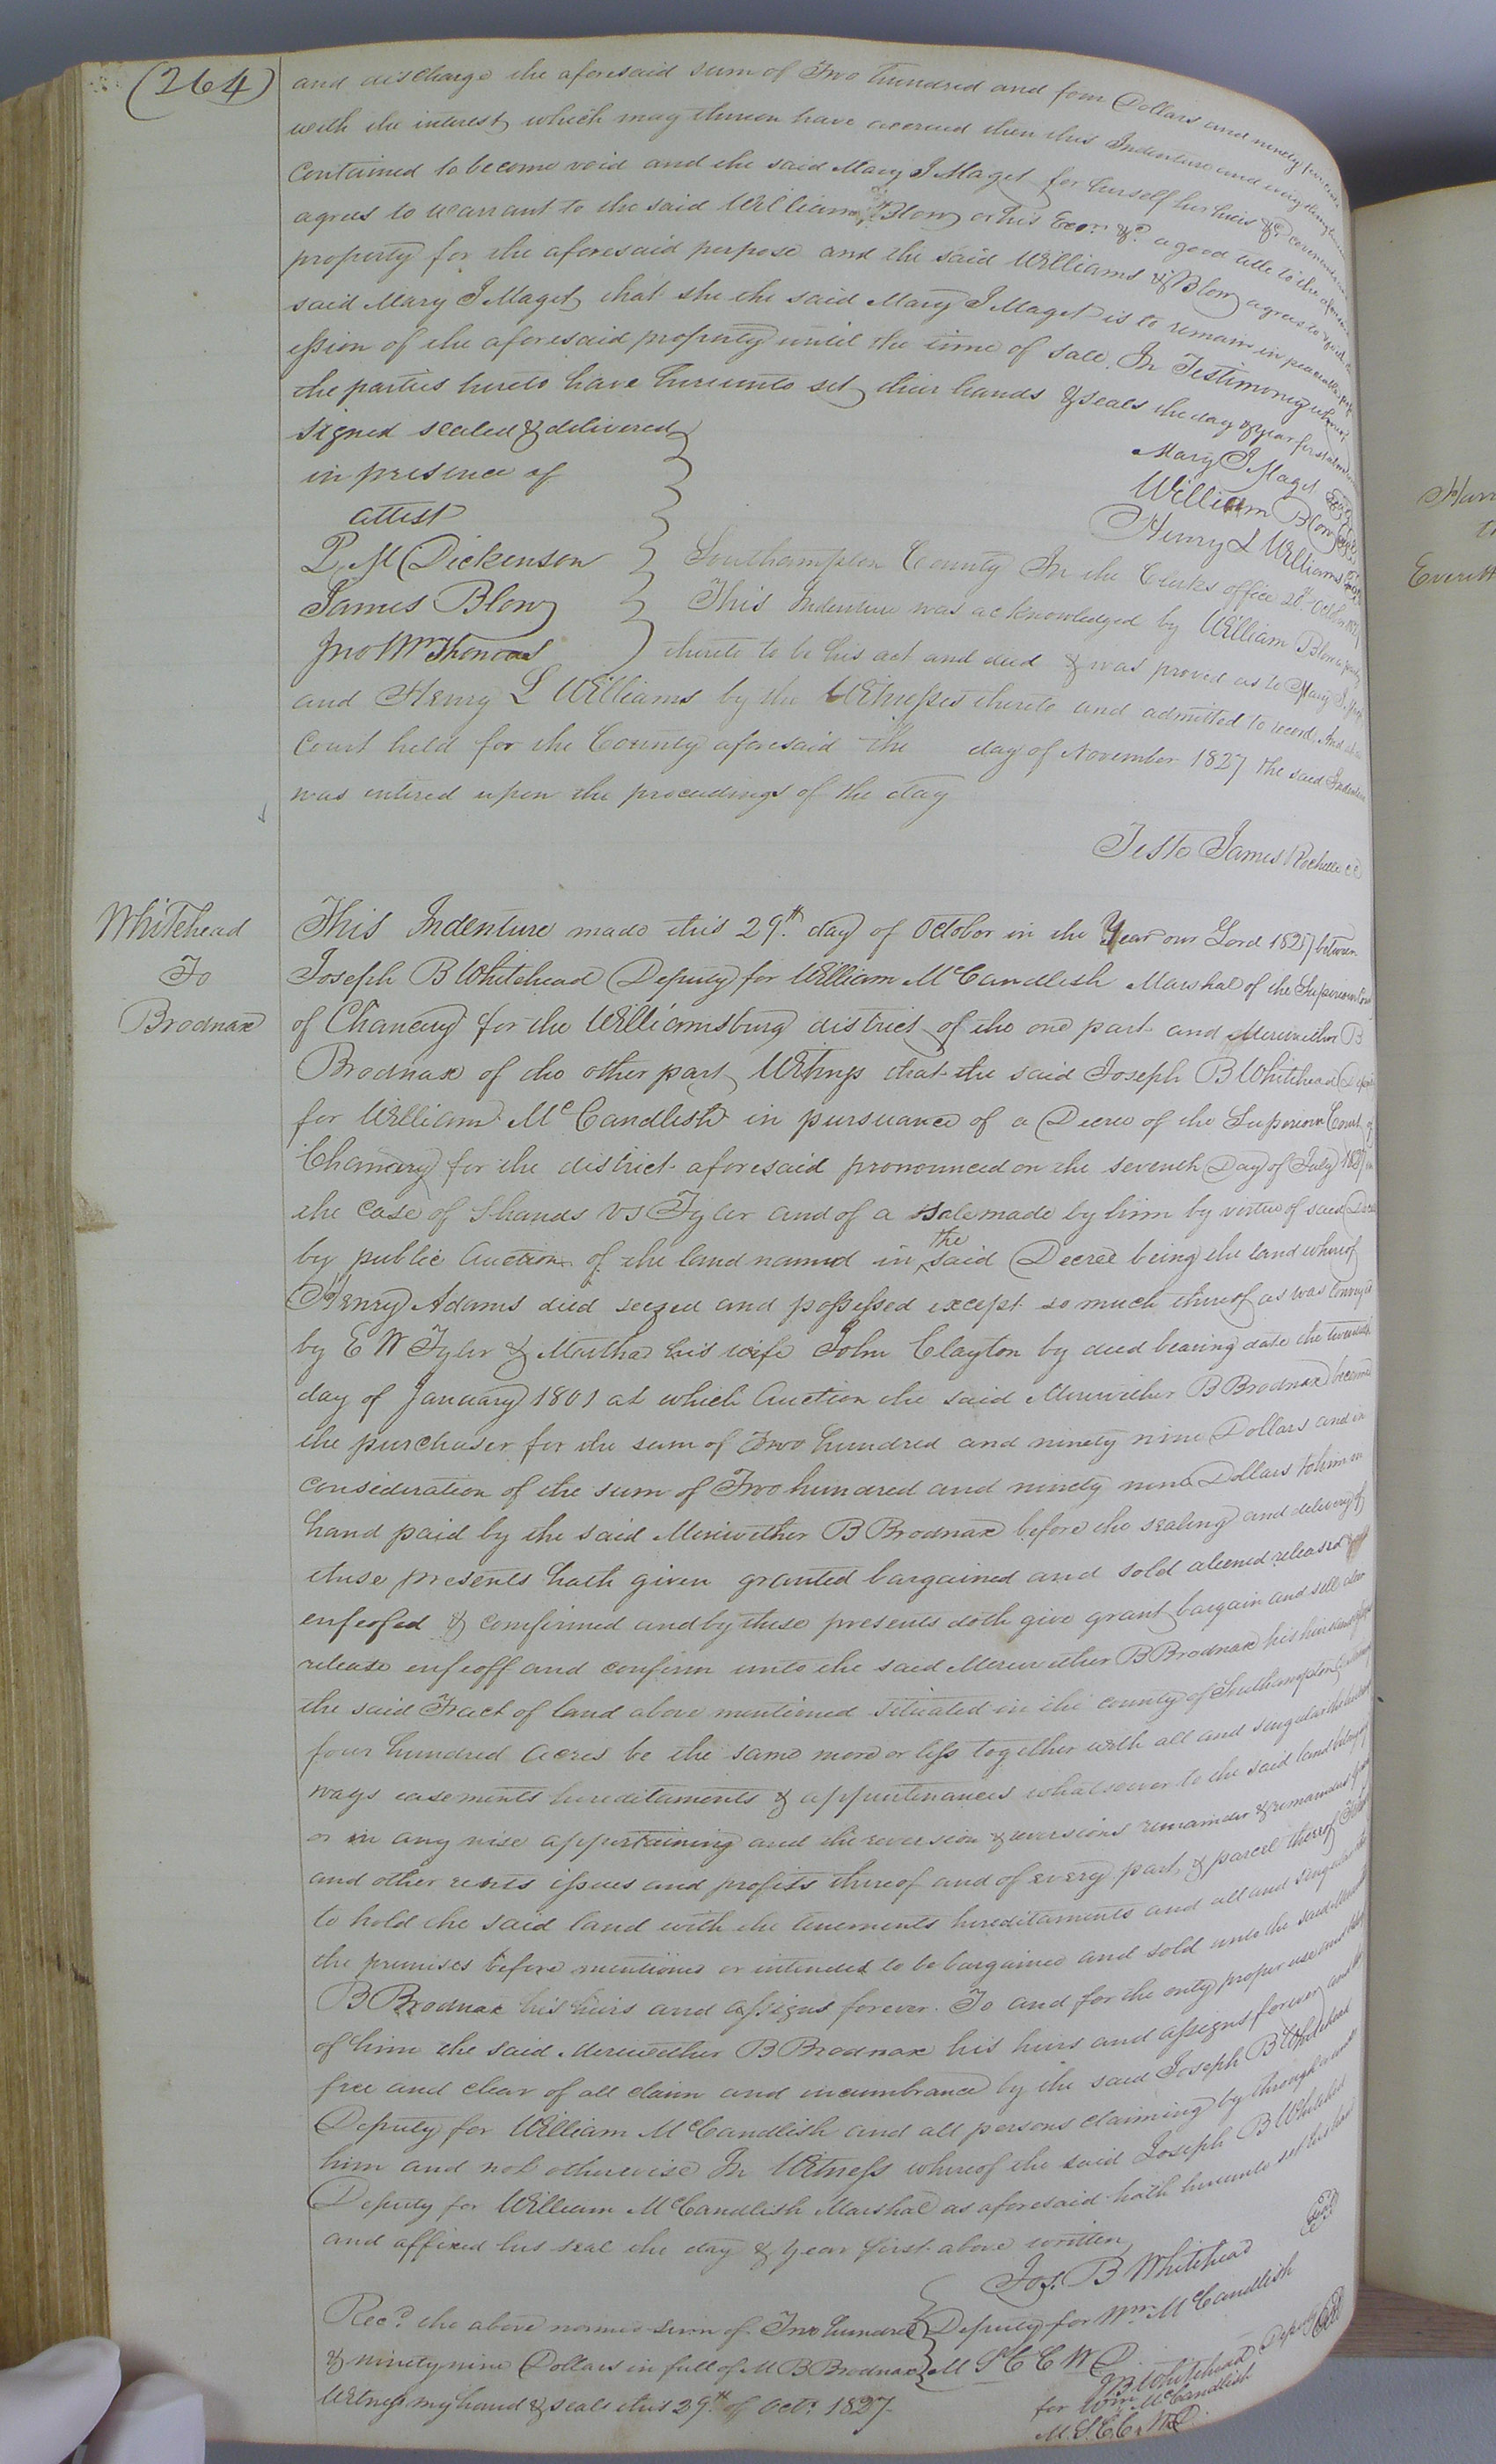 (264)
and discharge the aforesaid sum of Two hundred and four Dollars and ninety
with the interest which may thereon have accrued then this Indenture and every thing
Contained to become void and the said Mary J Maget for herself her heirs &c
agrees to warrant to the said William Blow or his Exor. &c. a good title to the
property for the aforesaid perpose and the said Williams & Blow agrees to
said Mary J Maget that she the said Mary J Maget is to remain in
ession of the aforesaid property until the time of sale. In Testimony whereof
the parties hereto have hereunto set their hands & seals the day & year first
signed sealed & delivered
in presence of
attest
P. M Dickenson
James Blow
Jno Wm Thomas
Mary J Maget Seal
William Blow Seal
Henry L Williams Seal
Southampton County In the Clerks office October 1827
This Indenture was acknowledged by William Blow a party
thereto to be his act and deed & was proved as to Mary J
and Henry L Williams by the Witnesses thereto and admitted to record. And
Court held for the County aforesaid the day of November 1827 the said Indenture
was entered upon the proceedings of the day
Teste James Rochelle CC
Whitehead
To
Brodnax
This Indenture made this 29th. day of October in the Year our Lord 1827 between
Joseph B Whitehead Deputy for William McCandlish Marshal of the Superior Court
of Chancery for the Williamsburg district of the one part and Meriwether B
Brodnax of the other part Witness that the said Joseph B Whitehead
for William McCandlish in pursuance of a Decree of the Superior Court of
Chancery for the district aforesaid pronounced on the seventh Day of July 1827 in
the Case of Shands vs Tyler and of a sale made by him by virtue of said
by public Auction of the land named in the said Decree being the land whereof
Henry Adams died seezed and possessed except so much thereof as was Conveyed
by E W Tyler & Martha his wife John Clayton by deed bearing date the
day of January 1801 at which Auction the said Meriwether B Brodnax became
the purchaser for the sum of Two hundred and ninety nine Dollars and in
consideration of the sum of Two hundred and ninety nine Dollars to him in
hand paid by the said Meriwether B Brodnax before the sealing and delivery of
these presents hath given granted bargained and sold aliened released
enfeofed & comfirmed and by these presents doth give grant bargain and sell
release enfeoff and confirm unto the said Meriwether B Brodnax his heirs
the said Tract of land above mentioned situated in the county of Southampton
four hundred acres be the same more or less together with all and singular the
ways easements hereditaments & appurtenances whatsoever to the said land belonging
or in any wise appertaining and the reversion & reversions remainder & remainders
and other rents issues and profits thereof and of every part & parcel thereof To
to hold the said land with the tenements hereditaments and all and singular the
the premises before mentioned or intended to be bargained and sold unto the said
B Brodnax his heirs and assigns forever. To and for the only proper use and
of him the said Meriwether B Brodnax his heirs and assigns forever and
free and clear of all claim and incumbrance by the said Joseph B Whitehead
Deputy for William McCandlish and all persons claiming by through
him and not otherwise In Witness whereof the said Joseph B Whitehead
Deputy for William McCandlish Marshal as aforesaid hath hereunto set his hand
and affixed his seal the day & year first above written
Jos. B Whitehead Seal
Deputy for Wm. McCandlish
M S C C W D.
Recd. the above named sum of Two hundred
& ninety nine Dollars in full of M B Brodnax
Witness my hand & seals this 29th. of Octr. 1827
J B Whitehead Deputy Seal
for Wm McCandlish
M.S.C.C.W.D.
Everett